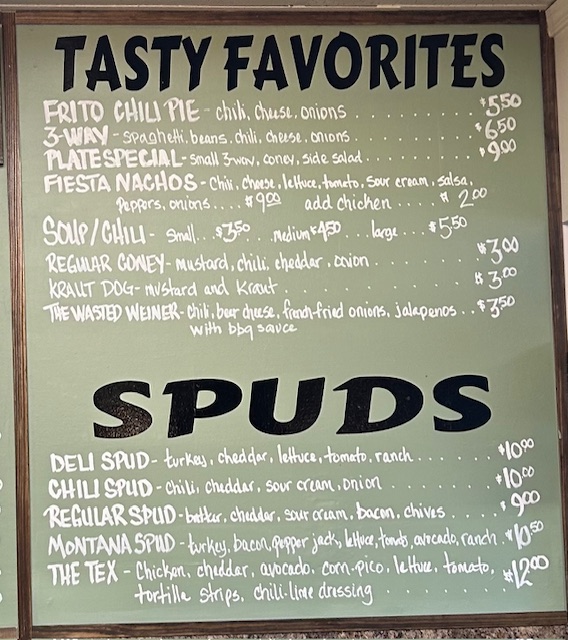 TASTY FAVORITES
FRITO CHILI PIE - chili, cheese, onions . . . . . . . . . . $5.50
3-WAY - spaghetti, beans, chili, cheese, onions . . . . . . . . . $6.50
PLATE SPECIAL - small 3-way, coney, side salad . . . . . . . . $9.00
FIESTA NACHOS - Chili, cheese, lettuce, tomato, sour cream, salsa,
peppers, onions . . . . $9.00 add chicken . . . . $2.00
SOUP/CHILI - Small . . . $3.50 . . . medium $4.50 . . . large . . . $5.50
REGULAR CONEY - mustard, chili, cheddar, onion . . . . . . . $3.00
KRAUT DOG - mustard and Kraut . . . . . . . . . . $3.00
THE WASTED WEINER - Chili, beer cheese, french-fried onions, jalapenos . . $3.50
with bbq sauce
SPUDS
DELI SPUD - turkey, cheddar, lettuce, tomato, ranch . . . . . . $10.00
CHILI SPUD - Chili, cheddar, sour cream, onion . . . . . . . . $10.00
REGULAR SPUD - butter, cheddar, sour cream, bacon, chives . . . . $9.00
MONTANA SPUD - turkey, bacon, pepper jack, lettuce, tomato, avocado, ranch . $10.50
THE TEX - Chicken, cheddar, avocado, corn-pico, lettuce, tomato, $12.00
tortilla strips, chili-lime dressing . . . . . . .